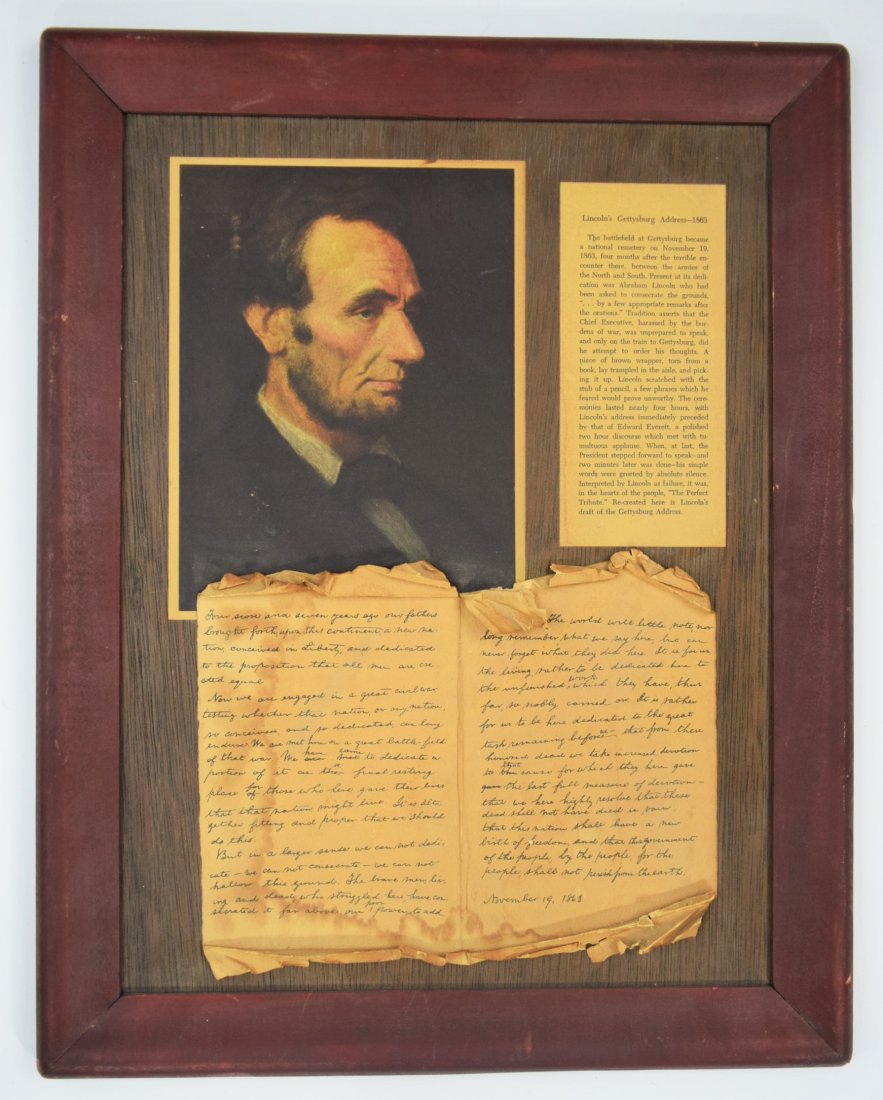 Lincoln's Gettysburg Address—1863
The battlefield at Gettysburg became
a national cemetery on November 19,
1863, four months after the terrible en-
counter there, between the armies of
the North and South. Present at its dedi-
cation was Abraham Lincoln who had
been asked to consecrate the grounds,
". . . by a few appropriate remarks after
the orations." Tradition asserts that the
Chief Executive, harassed by the bur-
dens of war, was unprepared to speak,
and only on the train to Gettysburg, did
he attempt to order his thoughts. A
piece of brown wrapper, torn from a
book, lay trampled in the aisle, and pick-
ing it up, Lincoln scratched with the
stub of a pencil, a few phrases which he
feared would prove unworthy. The cere-
monies lasted nearly four hours, with
Lincoln's address immediately preceded
by that of Edward Everett, a polished
two hour discourse which met with tu-
multuous applause. When, at last, the
President stepped forward to speak—and
two minutes later was done—his simple
words were greeted by absolute silence.
Interpreted by Lincoln as failure, it was,
in the hearts of the people, "The Perfect
Tribute." Re-created here is Lincoln's
draft of the Gettysburg Address.
Four score and seven years ago our fathers
brought forth, upon this continent, a new na-
tion, conceived in Liberty, and dedicated
to the proposition that all men are cre-
ated equal
Now we are engaged in a great civil war,
testing whether that nation, or any nation,
so conceived, and so dedicated, can long
endure. We are met here on a great battle-field
of that war. We have come to dedicate a
portion of it as the final resting
place for those who here gave their lives
that that nation might live. It is alto-
gether fitting and proper that we should
do this.
But in a larger sense we can not dedi-
cate — we can not consecrate — we can not
hallow this ground. The brave men, liv-
ing and dead, who struggled here have con-
secrated it far above our poor power to add
The world will little note, nor
long remember what we say here, but can
never forget what they did here. It is for us
the living rather to be dedicated here to
the unfinished work which they have, thus
far, so nobly carried on. It is rather
for us to be here dedicated to the great
task remaining before us — that from these
honored dead we take increased devotion
to that cause for which they here gave
gave the last full measure of devotion —
that we here highly resolve that these
dead shall not have died in vain
that this nation shall have a new
birth of freedom, and that this government
of the people, by the people, for the
people shall not perish from the earth.
November 19, 1863